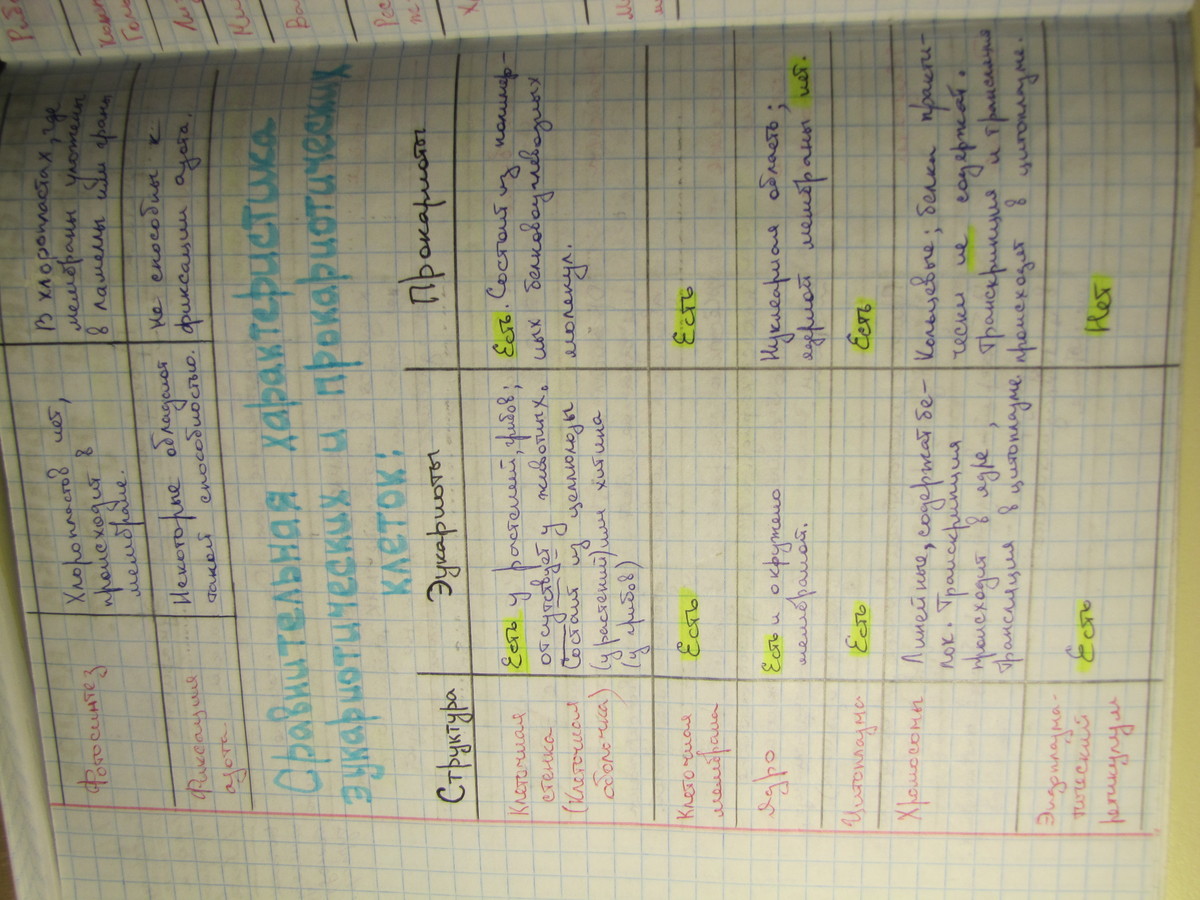 Фотосинтез
Хлоропластов нет,
происходит в
мембране.
В хлоропластах, где
мембраны уложены
в ламеллы или граны
Фиксация
азота
Некоторые обладают
такой способностью.
Не способны к
фиксации азота.
Сравнительная характеристика
эукариотических и прокариотических
клеток:
Структура
Эукариоты
Прокариоты
Клеточная
стенка
(Клеточная
оболочка)
Есть у растений, грибов;
отсутствует у животных.
Состоит из целлюлозы
(у растений) или хитина
(у грибов)
Есть. Состоит из полимер-
ных белковоуглеводных
молекул.
Клеточная
мембрана
Есть
Есть
Ядро
Есть и окружено
мембраной.
Нуклеарная область;
ядерной мембраны нет.
Цитоплазма
Есть
Есть
Хромосомы
Линейные, содержат бе-
лок. Транскрипция
происходит в ядре,
трансляция в цитоплазме
Кольцевые; белка практи-
чески не содержат.
Транскрипция и трансляция
происходят в цитоплазме.
Эндоплазма-
тический
ретикулум
Есть
Нет